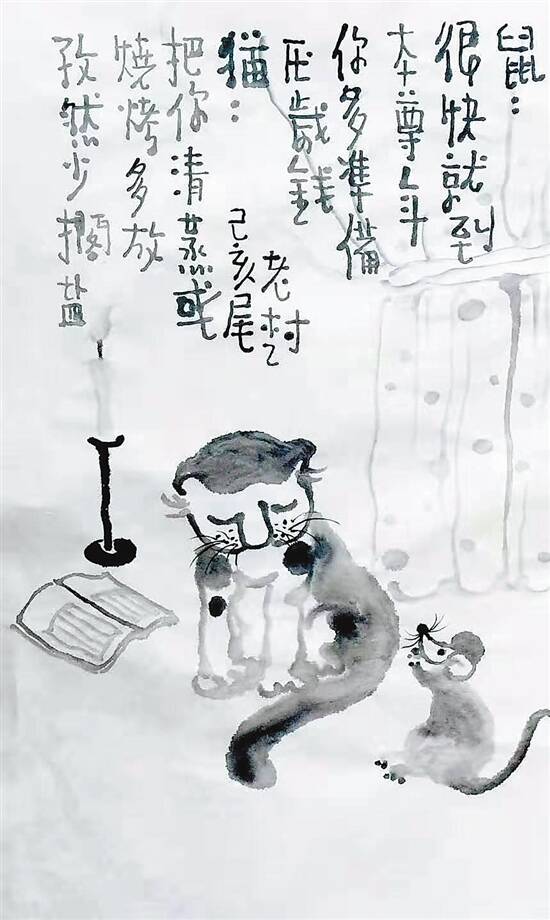 鼠：
很快就到
本尊年
你多準備
压歲錢
猫：
把你清蒸或
燒烤多放
孜然少擱盐
老村
己亥尾